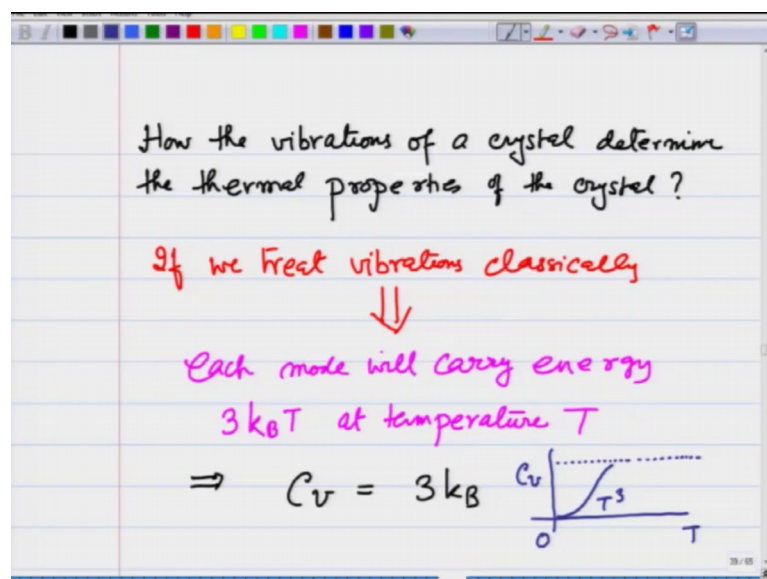 How the vibrations of a crystal determine
the thermal properties of the crystal?
If we treat vibrations classically
⇓
Each mode will carry energy
3 k_B T at temperature T
⇒ C_v = 3 k_B
C_v
T^3
0 T
39 / 65